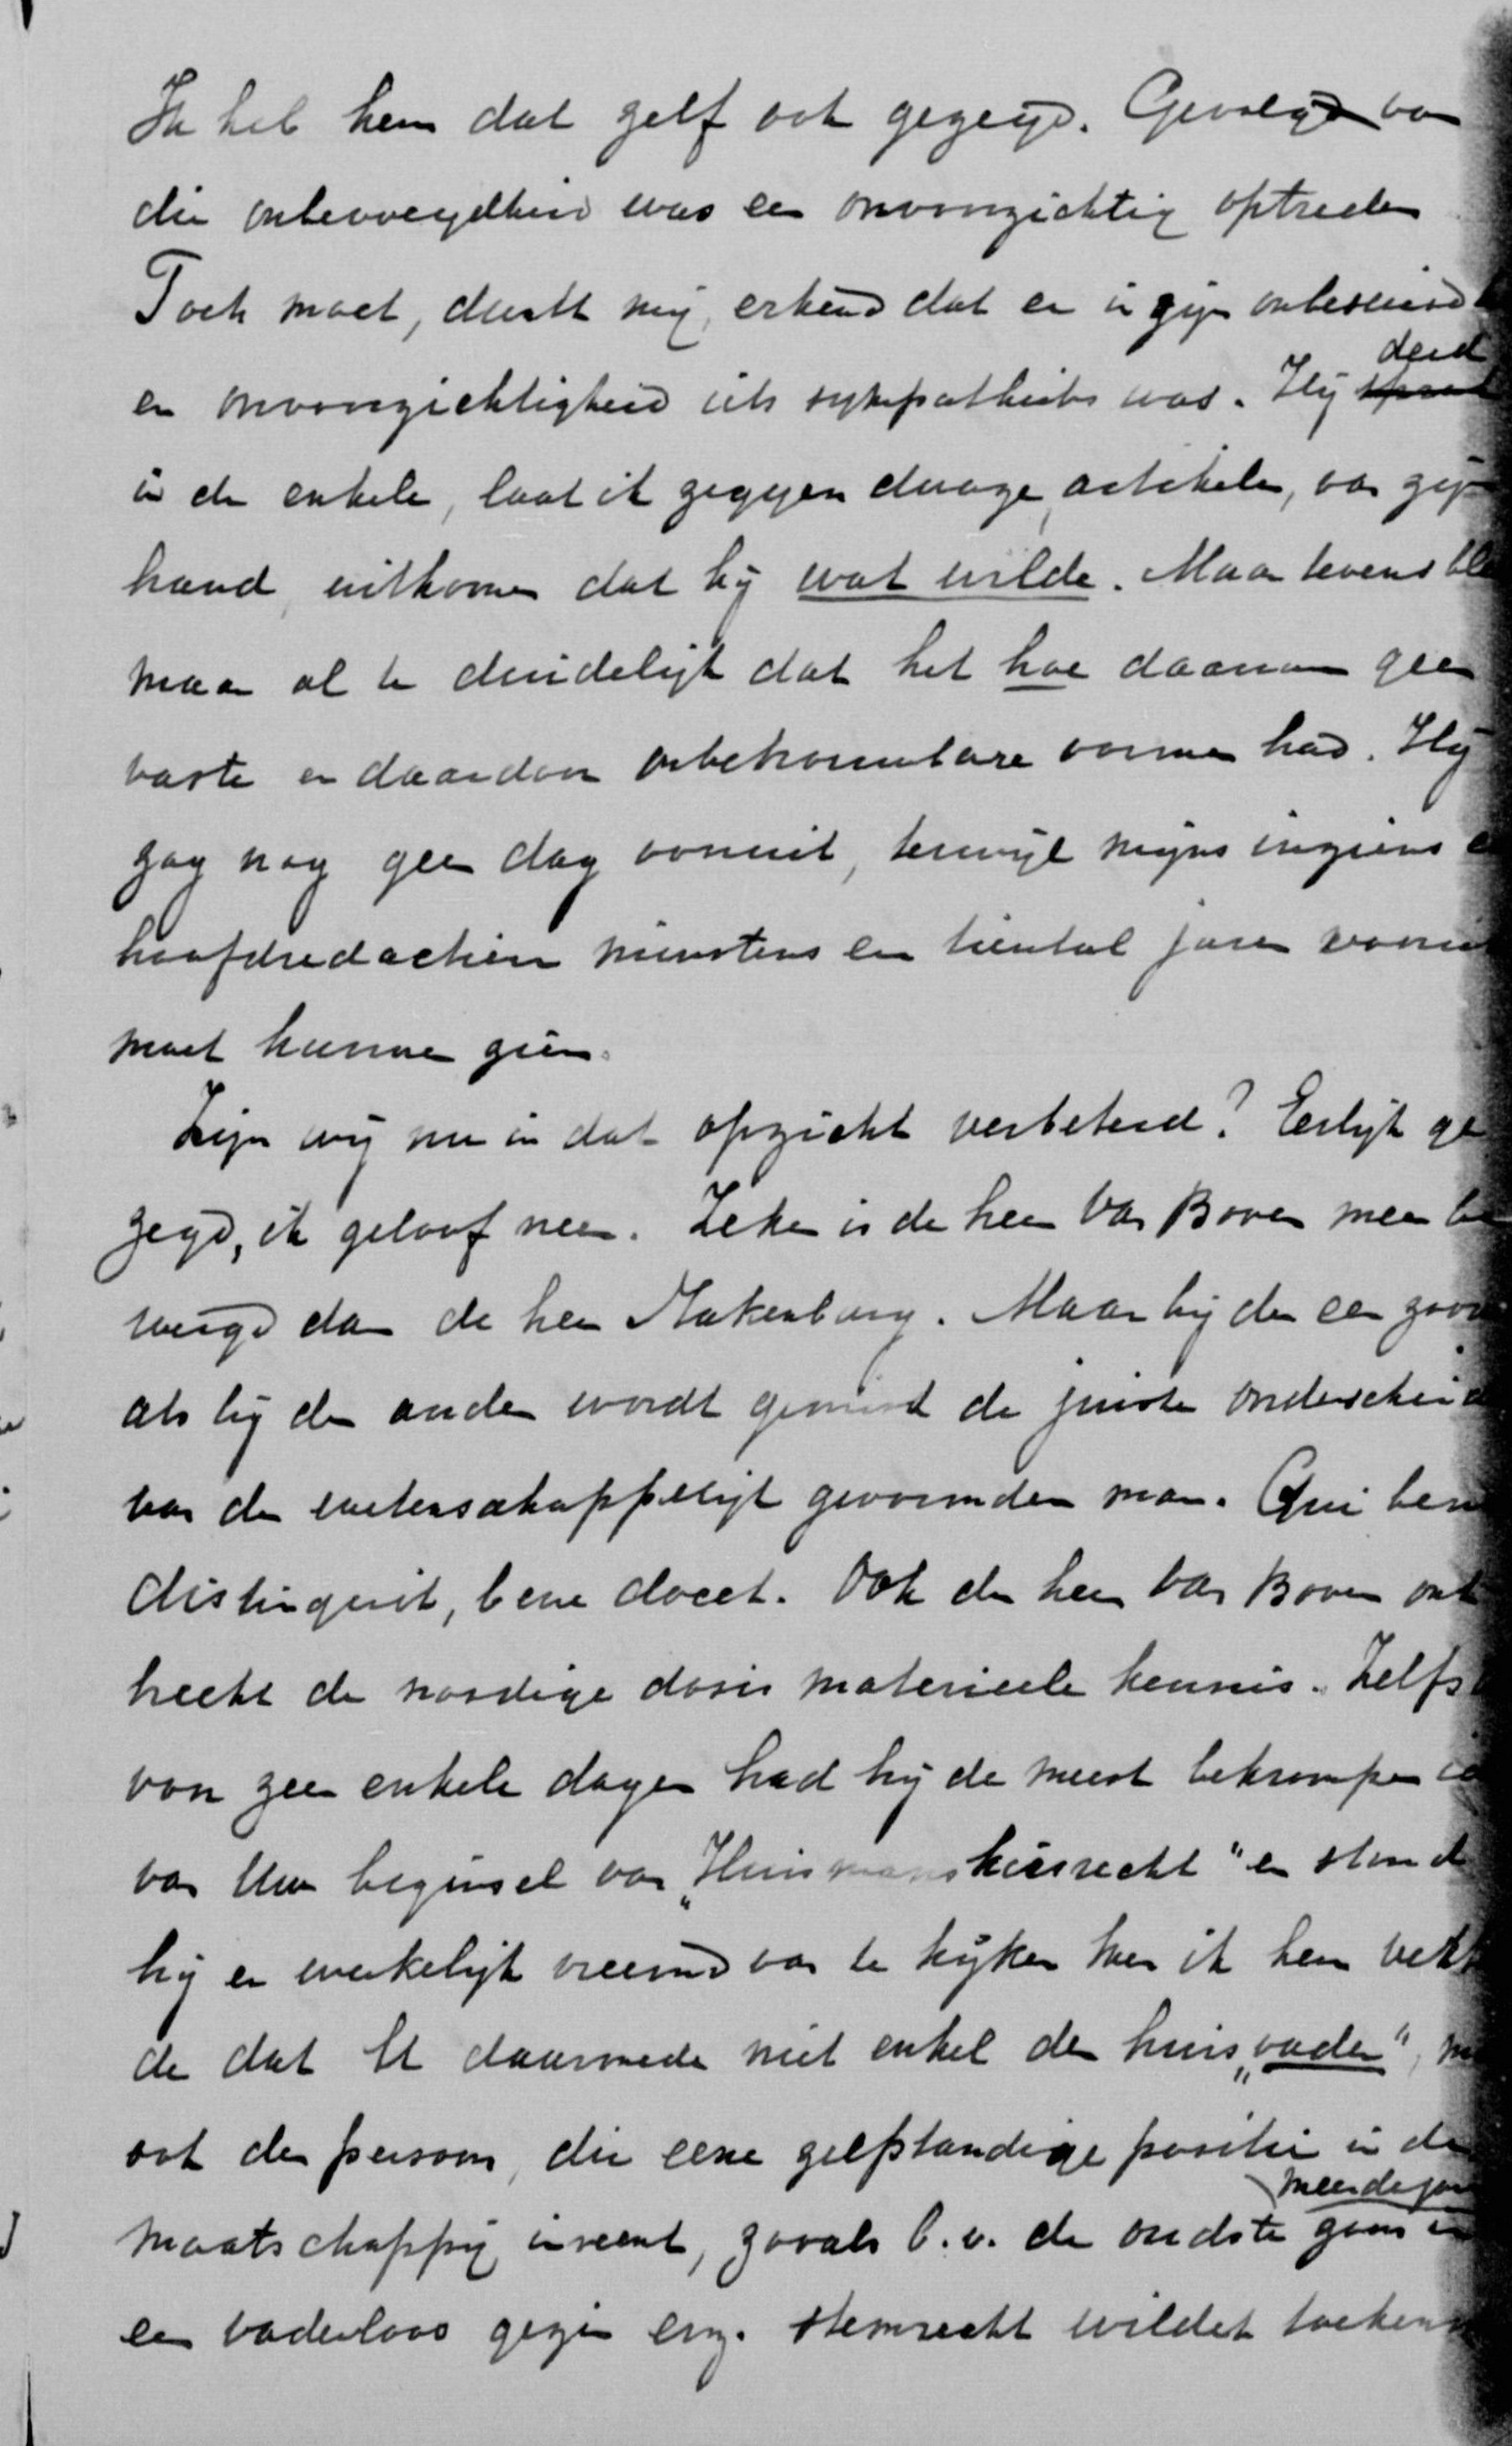 Ik heb hem dat zelf ook gezegd. Gevolg van
die onbevoegdheid was een onvoorzichtig optreden
Toch moet, dunkt mij, erkend dat er in zijn
en onvoorzichtigheid iets sympathieks was. Hij deed
in de enkele, laat ik zeggen drage, artikelen, van zijn
hand, uitkomen dat hij wat wilde. Maar tevens
maar al te duidelijk dat het hoe daarvan geen
vaste en daardoor vormen had. Hij
zag nog geen dag vooruit, terwijl mijns inziens
hoofdredactien minstens een tiental jaren vooruit
moet kunnen zien.
Zijn wij nu in dat opzicht verbeterd? Eerlijk ge
zegd, ik geloof neen. Zeker is de heer Van Boven meer be
reisd dan de heer Makenburg. Maar bij den een zoowel
als bij den ander wordt gemist de juiste onderscheid
van den wetenschappelijk gevormden man. Qui bene
distinguit, bene docet. Ook de heer Van Boven ont
breekt de noodige dosis materieele kennis. Zelfs
voor zeer enkele dagen had hij de meest bekrompen
van Uw beginsel van „Huismanskiesrecht" en stond
hij er werkelijk vreemd van te kijken toen ik hem
de dat U daarmede niet enkel den huis„vader",
ook den persoon, die eene zelfstandige positie in de
meerderjarige
maatschappij inneemt, zooals b.v. de oudste zoon in
een vaderloos gezin enz. stemrecht wildet